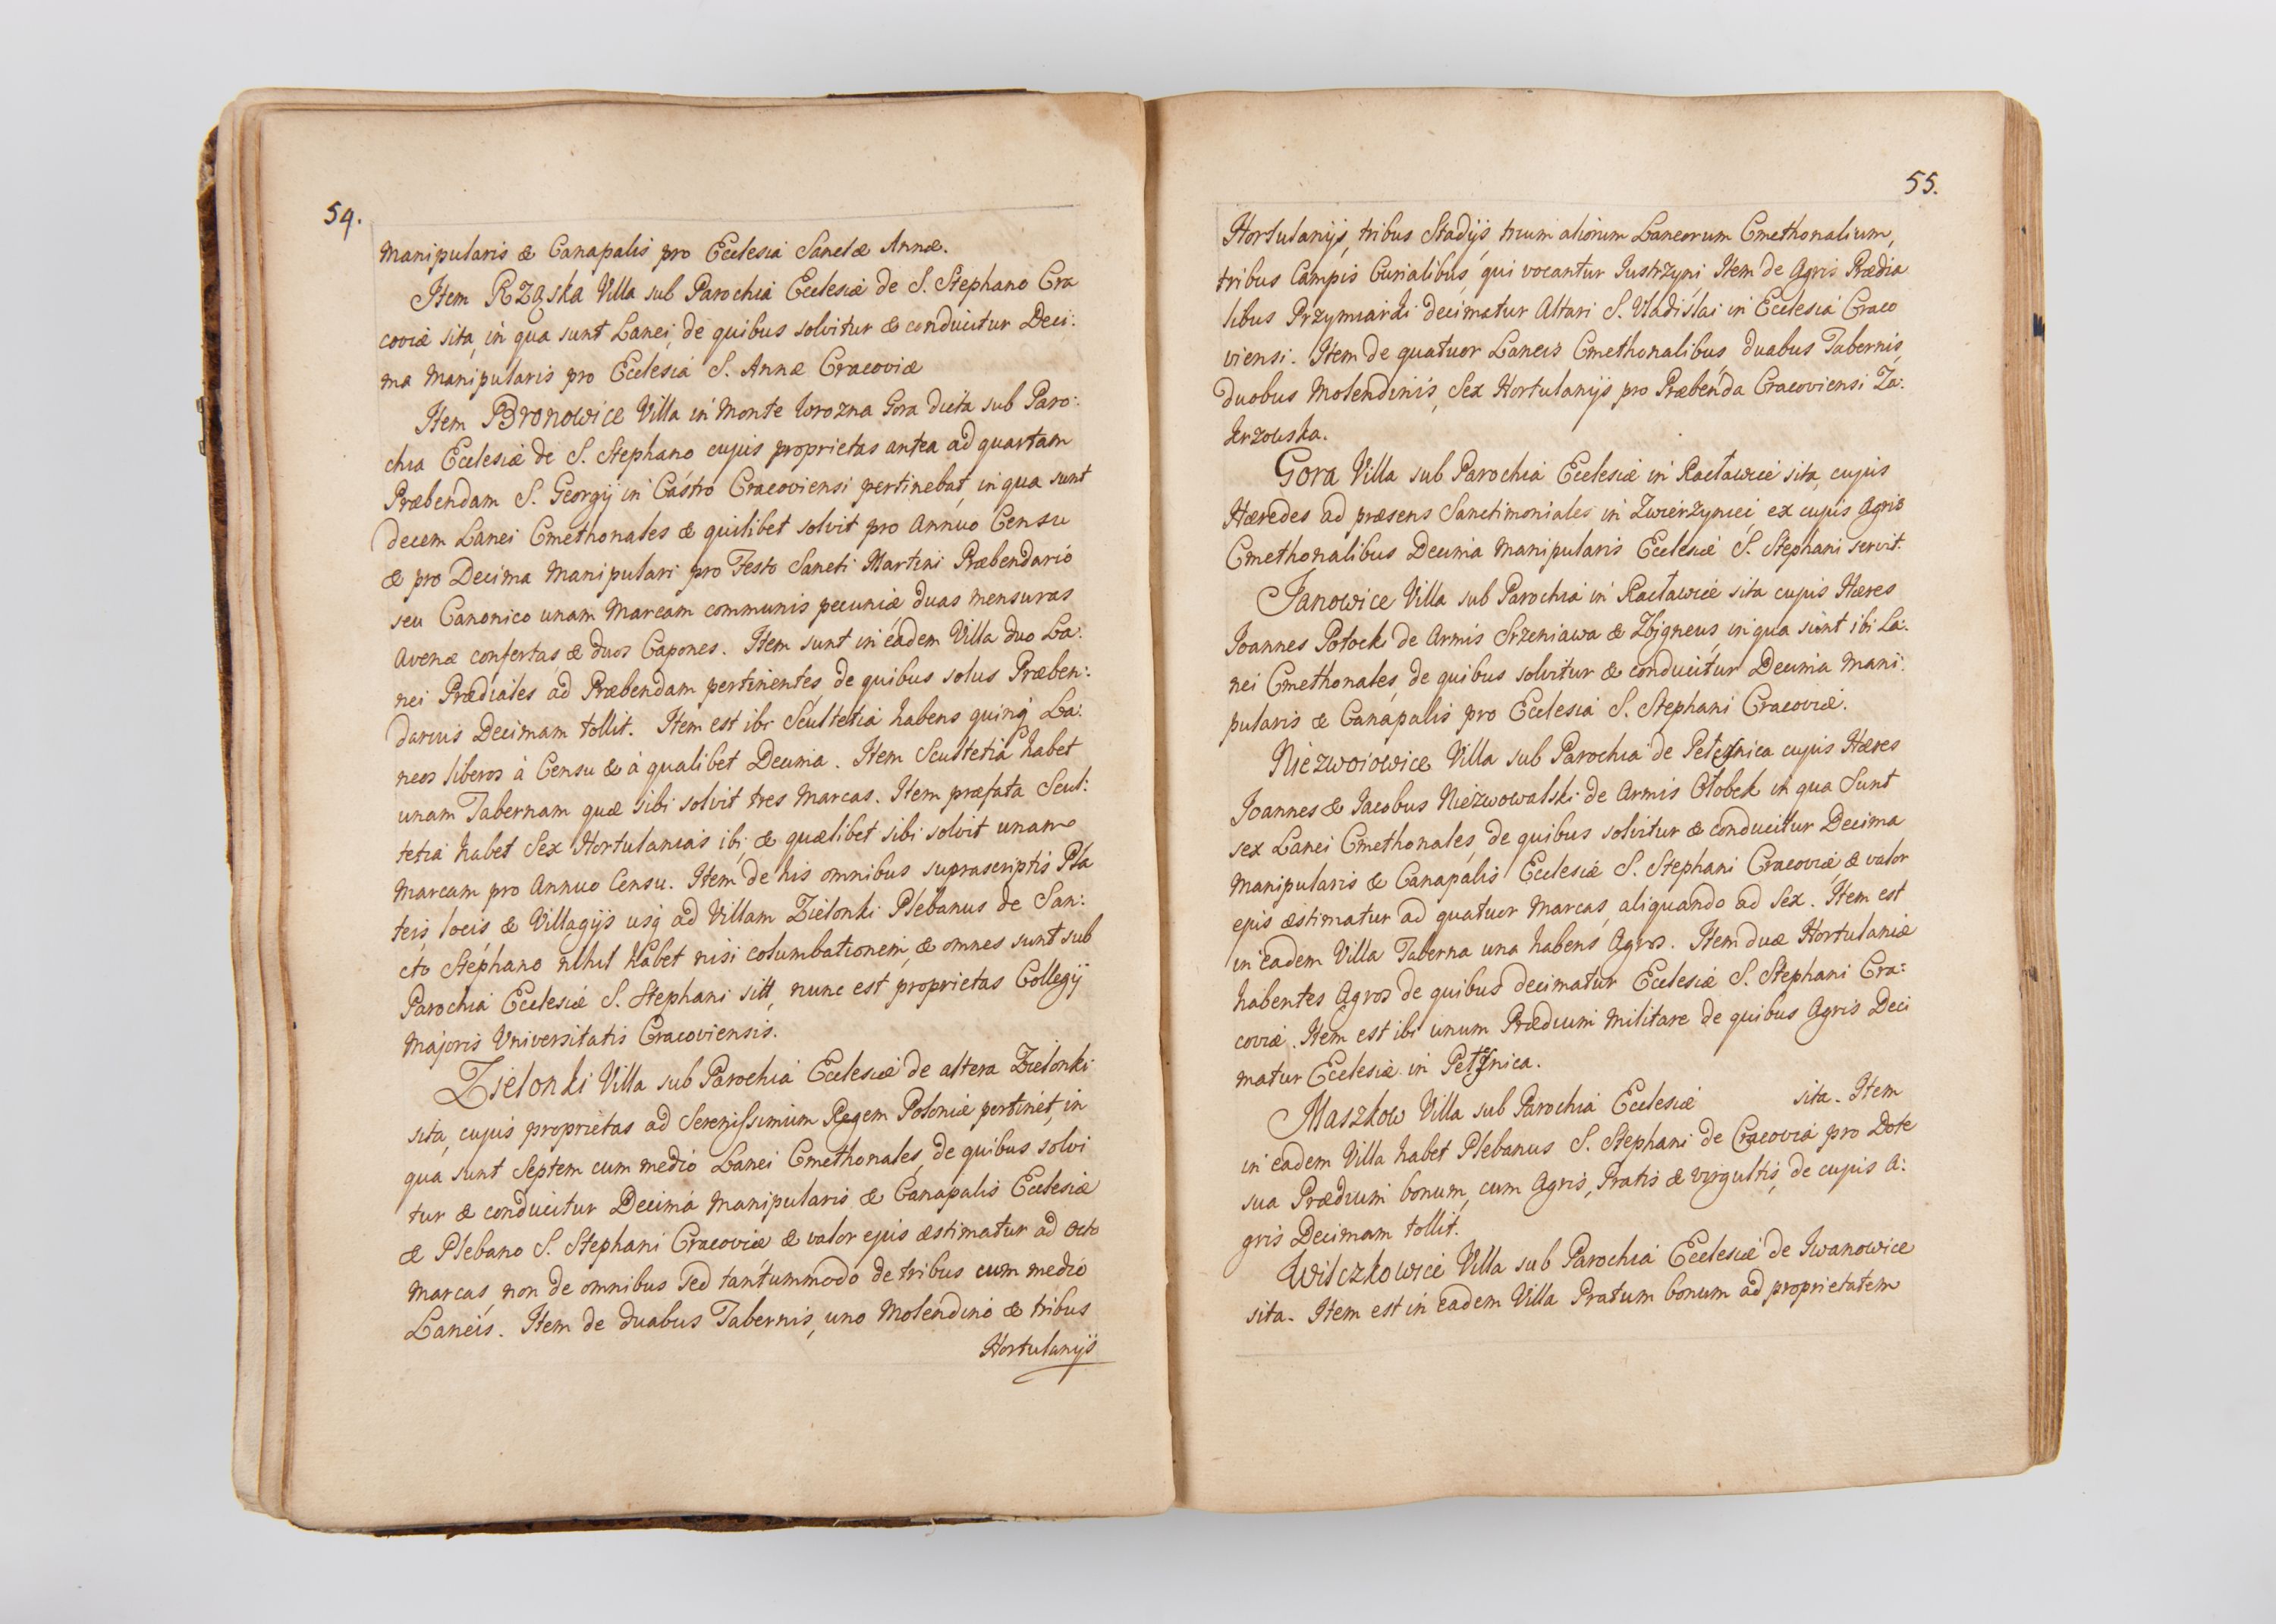 54.
Manipularis & Canapalis pro Ecclesia Sanctæ Annæ.
Item Rząska Villa sub Parochia Ecclesiæ de S. Stephano Cra
coviæ sita, in qua sunt Lanei, de quibus solvitur & conducitur Deci:
ma Manipularis pro Ecclesia S. Annæ Cracoviæ
Item Bronowice Villa in Monte Wrozna Gora dicta sub Paro:
chia Ecclesiæ de S. Stephano cujus proprietas antea ad quartam
Præbendam S. Georgij in Castro Cracoviensi pertinebat, in qua sunt
decem Lanei Cmethonales & quilibet solvit pro Annuo Censu
& pro Decima Manipulari pro Festo Sancti Martini Præbendario
seu Canonico unam Marcam communis pecuniæ duas mensuras
Avenæ confertas & duos Capones. Item sunt in eadem Villa duo La:
nei Prædiales ad Præbendam pertinentes, de quibus solus Præben:
darius Decimam tollit. Item est ibi Scultetia habens quinq La:
neos liberos à Censu & à qualibet Decima. Item Scultetia habet
unam Tabernam quæ sibi solvit tres Marcas. Item præfata Scul:
tetia habet Sex Hortulanias ibi, & quælibet sibi solvit unam
Marcam pro Annuo Censu. Item de his omnibus suprascriptis Pla
teis, locis & Villagijs usq ad Villam Zielonki Plebanus de San:
cto Stephano nihil habet nisi columbationem, & omnes sunt sub
Parochia Ecclesiæ S. Stephani sitt, nunc est proprietas Collegij
Majoris Universitatis Cracoviensis.
Zielonki Villa sub Parochia Ecclesiæ de altera Zielonki
sita, cujus proprietas ad Serenissimum Regem Poloniæ pertinet, in
qua sunt Septem cum medio Lanei Cmethonales, de quibus solvi
tur & conducitur Decima Manipularis & Canapalis Ecclesiæ
& Plebano S. Stephani Cracoviæ & valor ejus æstimatur ad octo
Marcas, non de omnibus sed tantummodo de tribus cum medio
Laneis. Item de duabus Tabernis, uno Molendino & tribus
Hortulanijs
55.
Hortulanijs, tribus Stadijs, trium aliorum Laneorum Cmethonalium,
tribus Campis Curialibus, qui vocantur Iustrzyni, Item de Agris Prædia
libus Przymiarki decimatur Altari S. Vladislai in Ecclesia Craco
viensi. Item de quatuor Laneis Cmethonalibus, duabus Tabernis,
duobus Molendinis, Sex Hortulanijs pro Præbenda Cracoviensi Za:
krzowska.
Gora Villa sub Parochia Ecclesiæ in Racławice sita, cujus
Hæredes ad præsens Sanctimoniales in Zwierzyniec ex cujus Agris
Cmethonalibus Decima Manipularis Ecclesiæ S. Stephani servit.
Janowice Villa sub Parochia in Racławice sita cujus Hæres
Joannes Potocki de Armis Srzeniawa & Zbigneus, in qua sunt ibi La:
nei Cmethonales, de quibus solvitur & conducitur Decima Mani:
pularis & Canapalis pro Ecclesia S. Stephani Cracoviæ.
Niezwoiowice Villa sub Parochia de cujus Hæres
Joannes & Jacobus Niezwowalski de Armis in qua Sunt
sex Lanei Cmethonales, de quibus solvitur & conducitur Decima
Manipularis & Canapalis Ecclesiæ S. Stephani Cracoviæ, & valor
ejus æstimatur ad quatuor Marcas, aliquando ad Sex. Item est
in eadem Villa Taberna una habens Agros. Item duæ Hortulaniæ
habentes Agros de quibus decimatur Ecclesiæ S. Stephani Cra:
coviæ. Item est ibi unum Prædium Militare de quibus Agris Deci
matur Ecclesiæ in
Maszkow Villa sub Parochia Ecclesiæ sita. Item
in eadem Villa habet Plebanus S. Stephani de Cracovia pro Dote
sua Prædium bonum, cum Agris, Pratis & virgultis, de cujus A:
gris Decimam tollit.
Wilczkowice Villa sub Parochia Ecclesiæ de Iwanowice
sita. Item est in eadem Villa Pratum bonum ad proprietatem